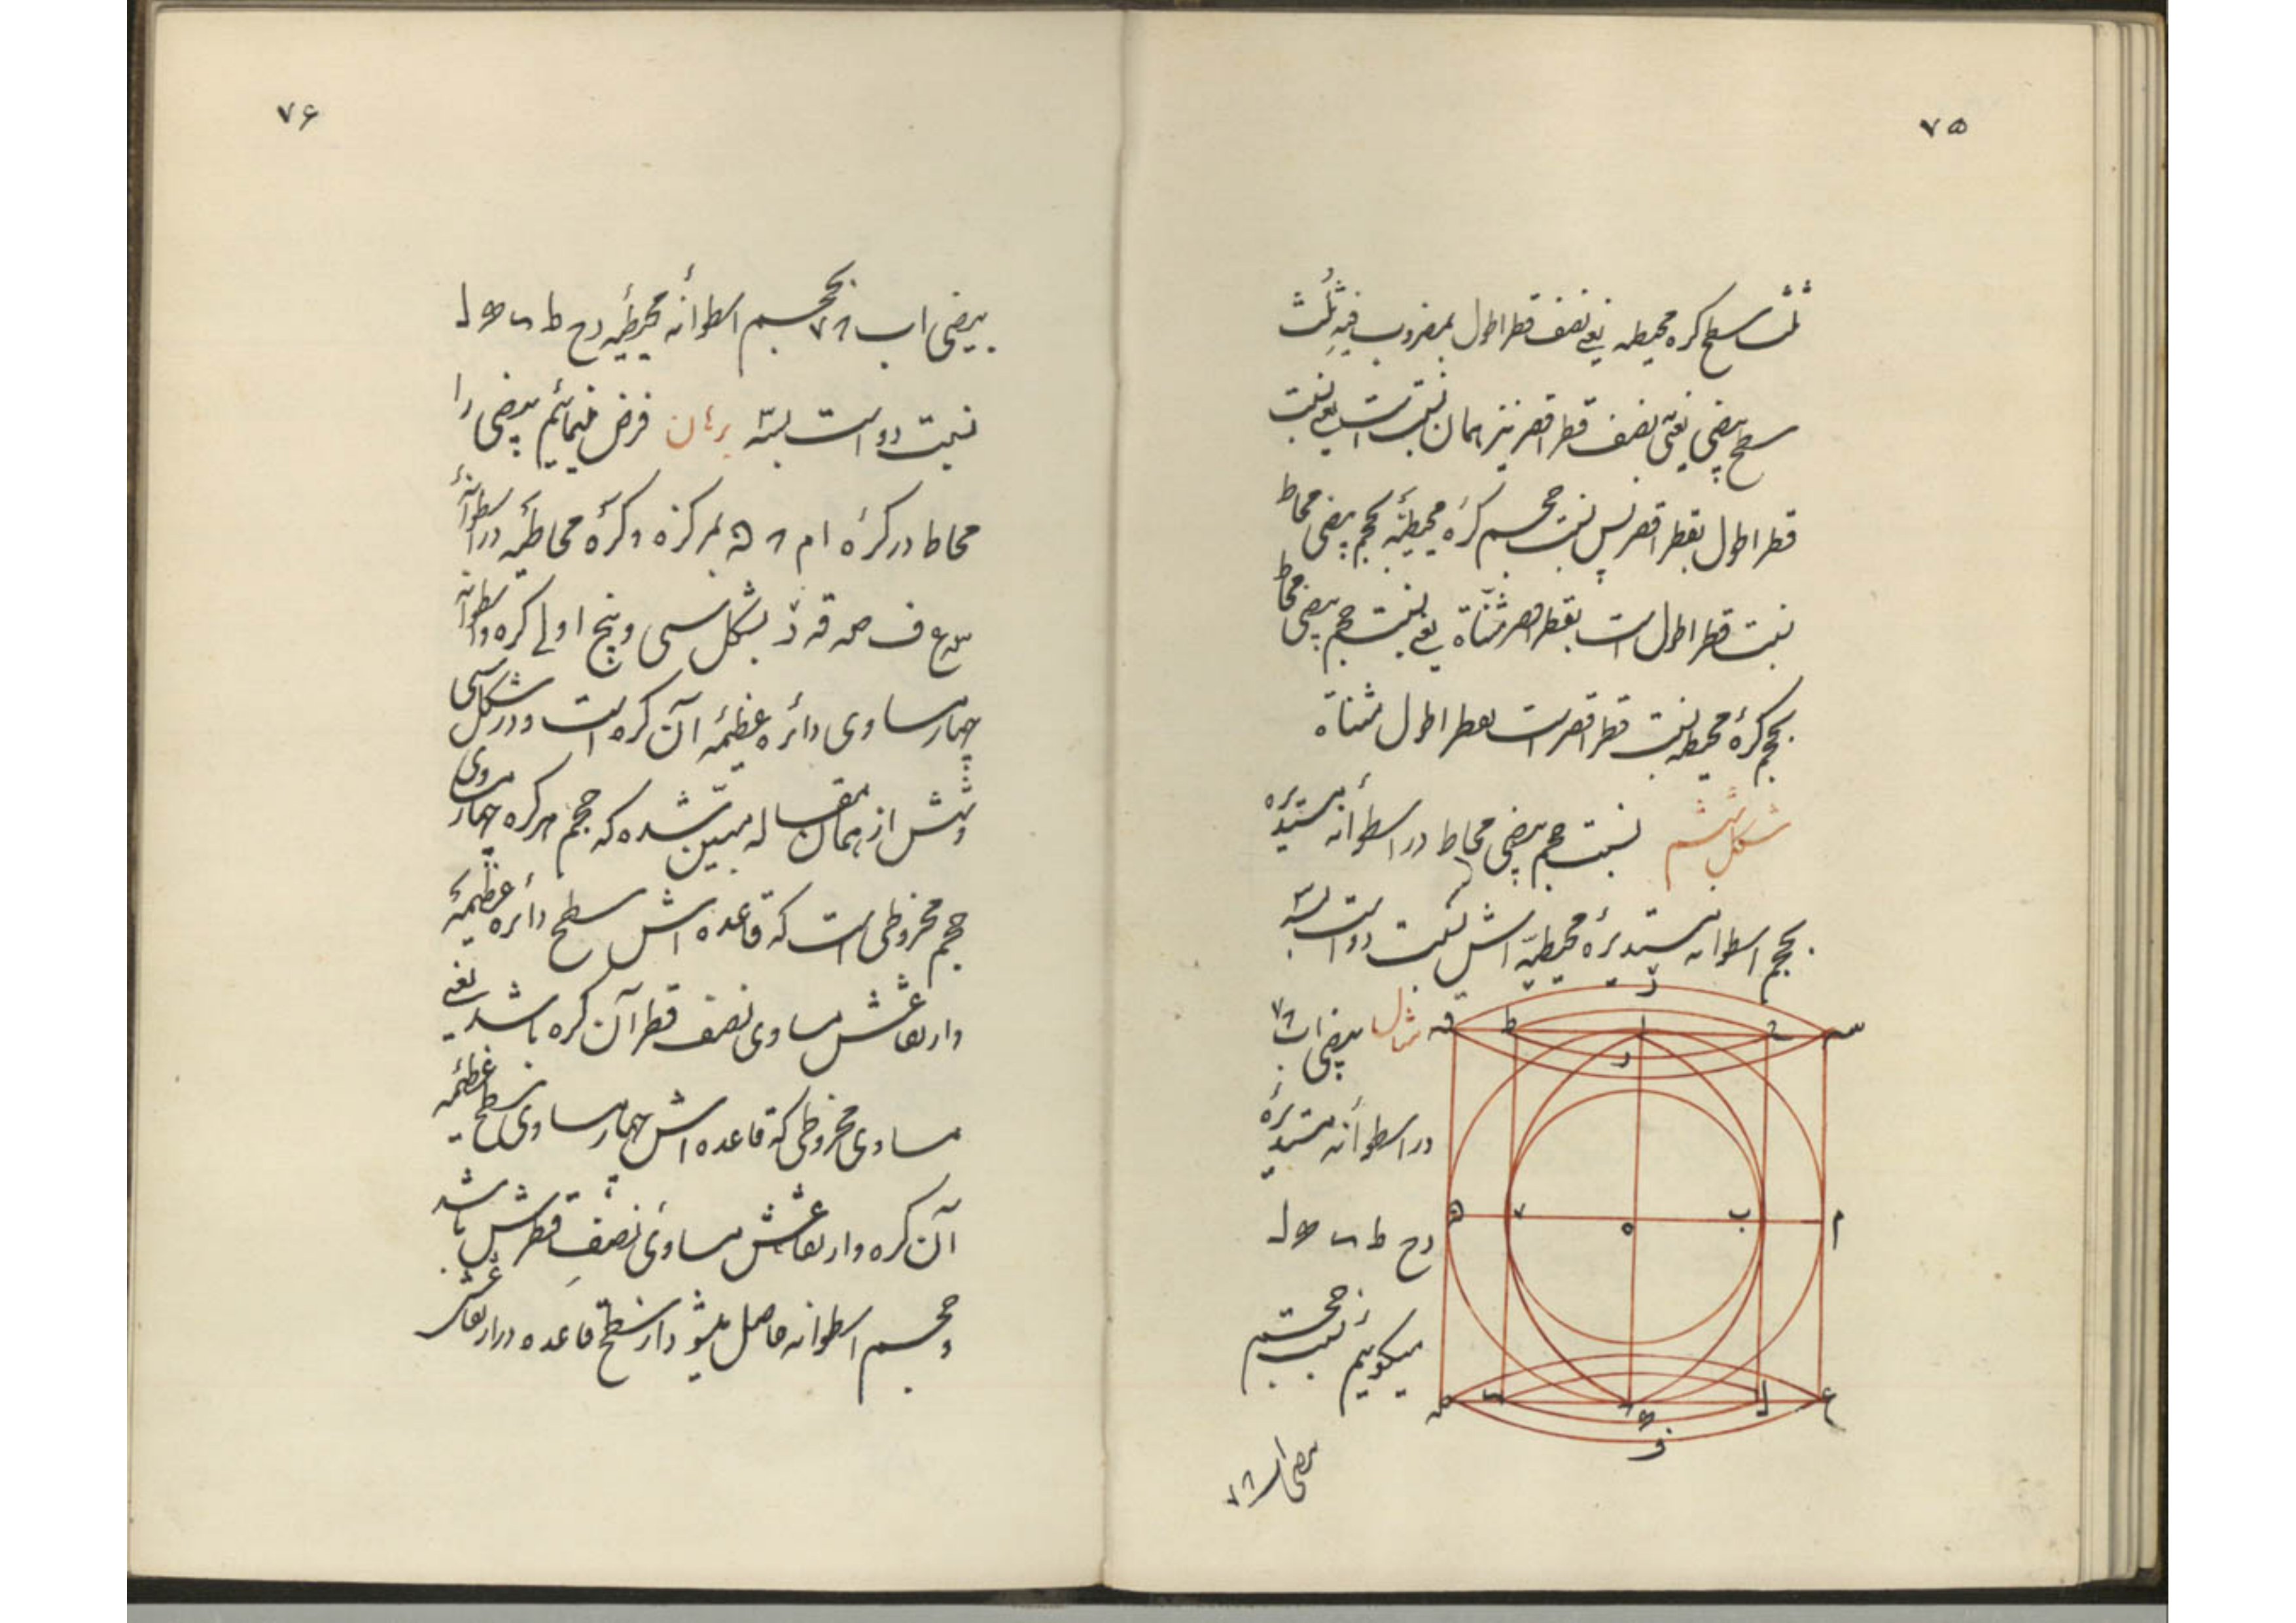 ۷۵
ثلث سطح کره محیطه یعنی نصف قطر اطول بمضروب فیه ثلث
سطح بیضی یعنی نصف قطر اقصر نیز همان نسبت است یعنی نسبت
قطر اطول بقطر اقصر پس نسبت حجم کرهٔ محیطیّه بحجم بیضی محاط
نسبت قطر اطول است بقطر اقصر مثناة یعنی نسبت حجم بیضی محاط
بحجم کرهٔ محیطه نسبت قطر اقصر است بقطر اطول مثناة
شکل ششم نسبت حجم بیضی محاط در اسطوانه مستدیره
بحجم اسطوانه مستدیرهٔ محیطیّه اش نسبت دو است بسه
مثال بیضی اب
در اسطوانه مستدیرهٔ
رح ط
میکوییم نسبت حجم
بیضی اب
ز
قه ط ا ح س
ر
ه ب م
ل ع
ف
۷۶
بیضی اب بحجم اسطوانه محیطیّه رح ط
نسبت دو است بسه برهان فرض مینمائیم بیضی را
محاط در کرهٔ ام بمرکز ه و کرهٔ محاطیّه در اسطوانهٔ
س ع ف صه قه ز بشکل سی و پنج اولی کره و اسطوانه
چهار مساوی دائره عظیمهٔ آن کره است و در شکل سی
و شش از همان مقاله مبین شده که حجم هر کره چهار مساوی
حجم مخروطی است که قاعده اش سطح دائره عظیمهٔ
و ارتفاعش مساوی نصف قطر آن کره باشد یعنی
مساوی مخروطی که قاعده اش چهار مساوی سطح عظیمه
آن کره و ارتفاعش مساوی نصف قطرش باشد
و حجم اسطوانه حاصل میشود از سطح قاعده در ارتفاعش